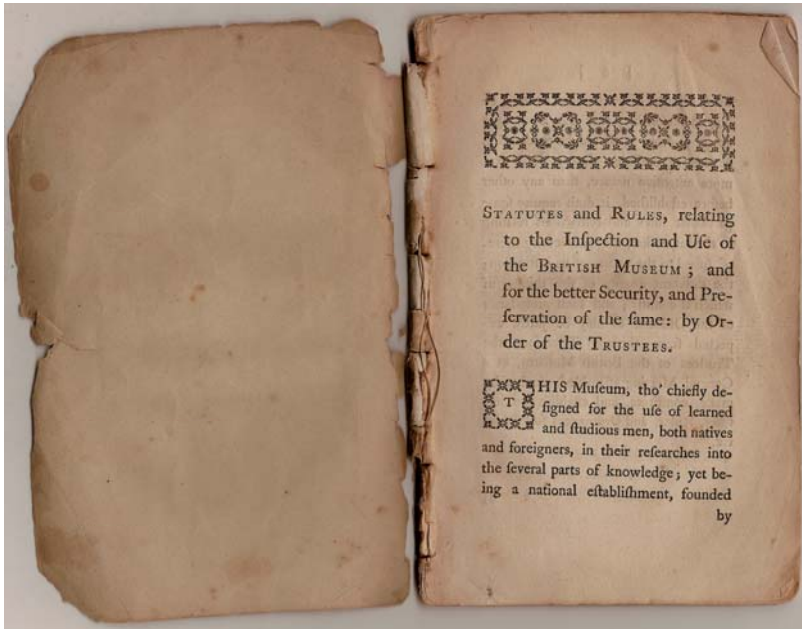 STATUTES and RULES, relating
to the Inſpection and Uſe of
the BRITISH MUSEUM ; and
for the better Security, and Pre-
ſervation of the ſame : by Or-
der of the TRUSTEES.
THIS Muſeum, tho' chiefly de-
ſigned for the uſe of learned
and ſtudious men, both natives
and foreigners, in their reſearches into
the ſeveral parts of knowledge ; yet be-
ing a national eſtabliſhment, founded
by